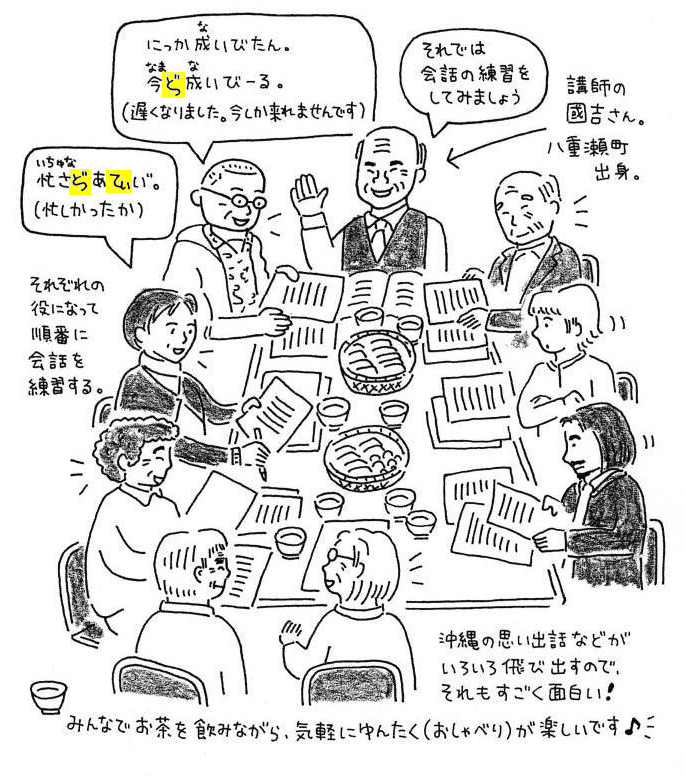 な
にっか成いびたん。
なま な
今どぅ成いびーる。
(遅くなりました。今しか来れませんです)
それでは
会話の練習を
してみましょう
講師の
國吉さん。
八重瀬町
出身。
いちゅな
忙さどぅあてぃい゙。
(忙しかったか)
それぞれの
役になって
順番に
会話を
練習する。
沖縄の思い出話などが
いろいろ飛び出すので、
それもすごく面白い!
みんなでお茶を飲みながら、気軽にゆんたく(おしゃべり)が楽しいです♪